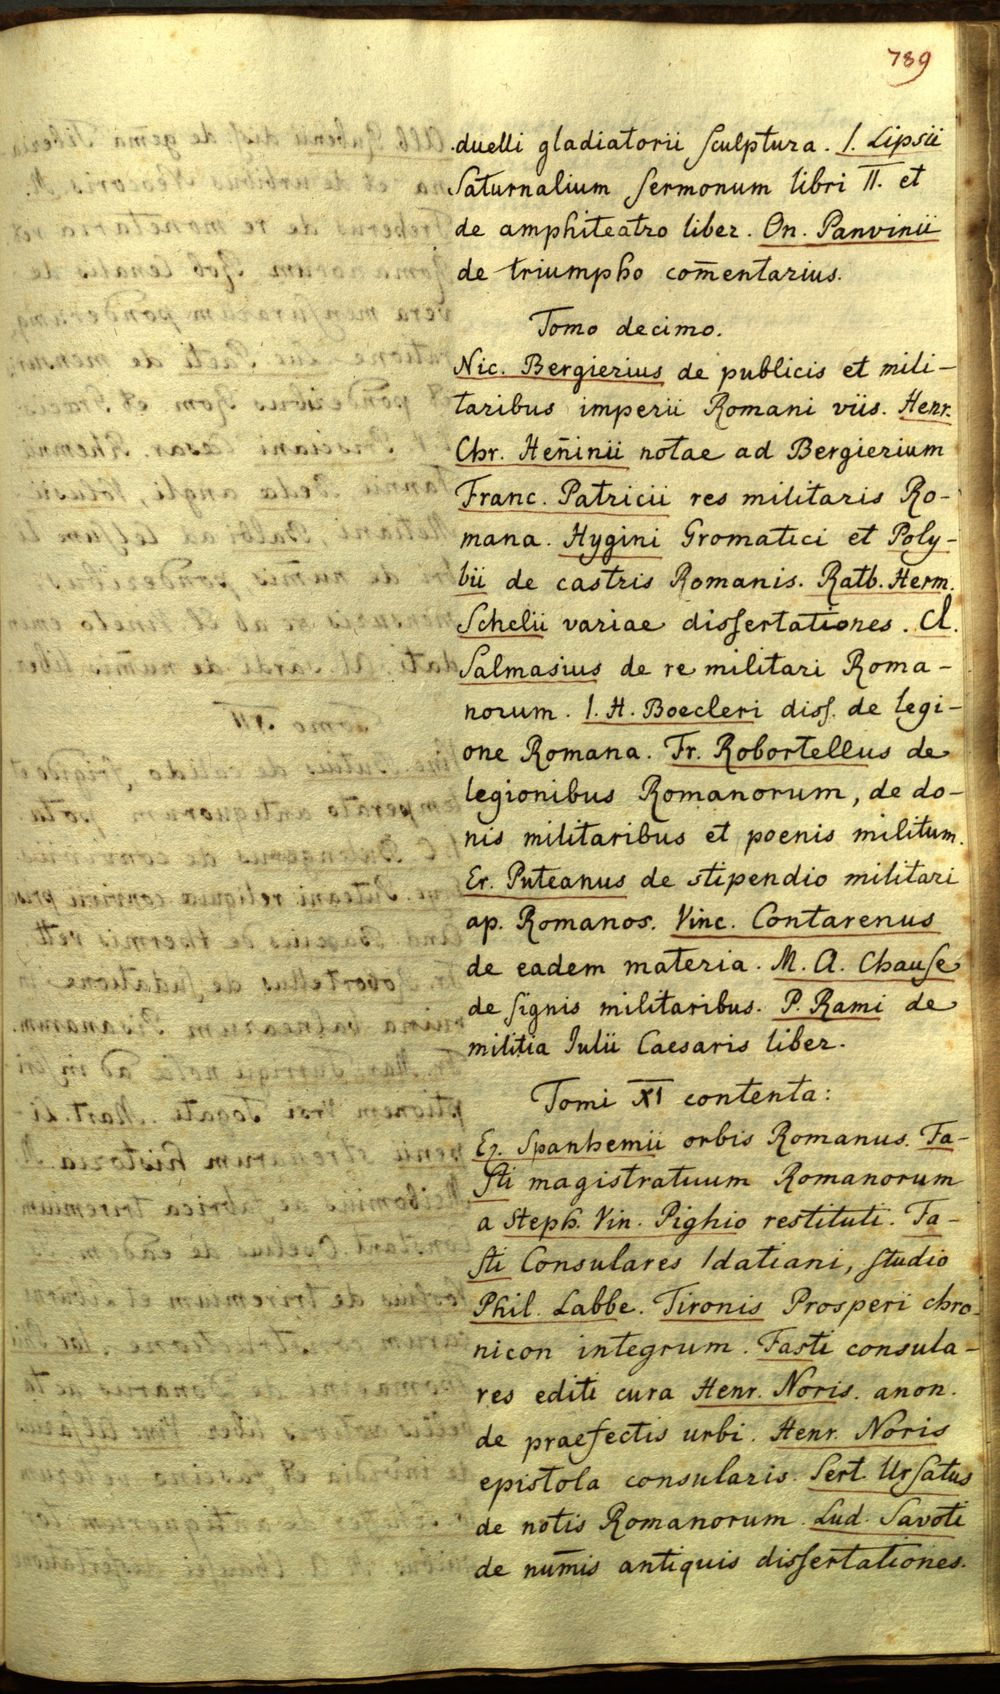 789
duelli gladiatorii sculptura. I. Lipsii
Saturnalium sermonum libri II. et
de amphiteatro liber. On. Panvinii
de triumpho com̅entarius.
Tomo decimo.
Nic. Bergierius de publicis et mili-
taribus imperii Romani viis. Henr.
Chr. Hen̅inii notae ad Bergierium
Franc. Patricii res militaris Ro-
mana. Hygini Gromatici et Poly-
bii de castris Romanis. Ratb. Herm.
Schelii variae dissertationes. Cl.
Salmasius de re militari Roma-
norum. I. H. Boecleri diss. de legi-
one Romana. Fr. Robortellus de
legionibus Romanorum, de do-
nis militaribus et poenis militum.
Er. Puteanus de stipendio militari
ap. Romanos. Vinc. Contarenus
de eadem materia. M. A. Chause
de signis militaribus. P. Rami de
militia Iulii Caesaris liber.
Tomi XI contenta:
Ez. Spanhemii orbis Romanus. Fa-
sti magistratuum Romanorum
a Steph. Vin. Pighio restituti. Fa-
sti Consulares Idatiani, studio
Phil. Labbe. Tironis Prosperi chro-
nicon integrum. Fasti consula-
res editi cura Henr. Noris. anon.
de praefectis urbi. Henr. Noris
epistola consularis. Sert. Ursatus
de notis Romanorum. Lud. Savoti
de num̅is antiquis dissertationes.